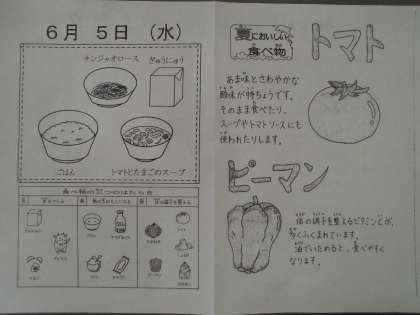 6月 5日 (水)
チンジャオロース
ぎゅうにゅう
ごはん
トマトとたまごのスープ
食べ物の三つのはたらき
夏においしい
食べ物
トマト
あま味とさわやかな
酸味が特ちょうです。
そのまま食べたり、
スープやトマトソースにも
使われたりします。
ピーマン
体の調子を整えるビタミンCが、
多くふくまれています。
油でいためると、食べやすく
なります。